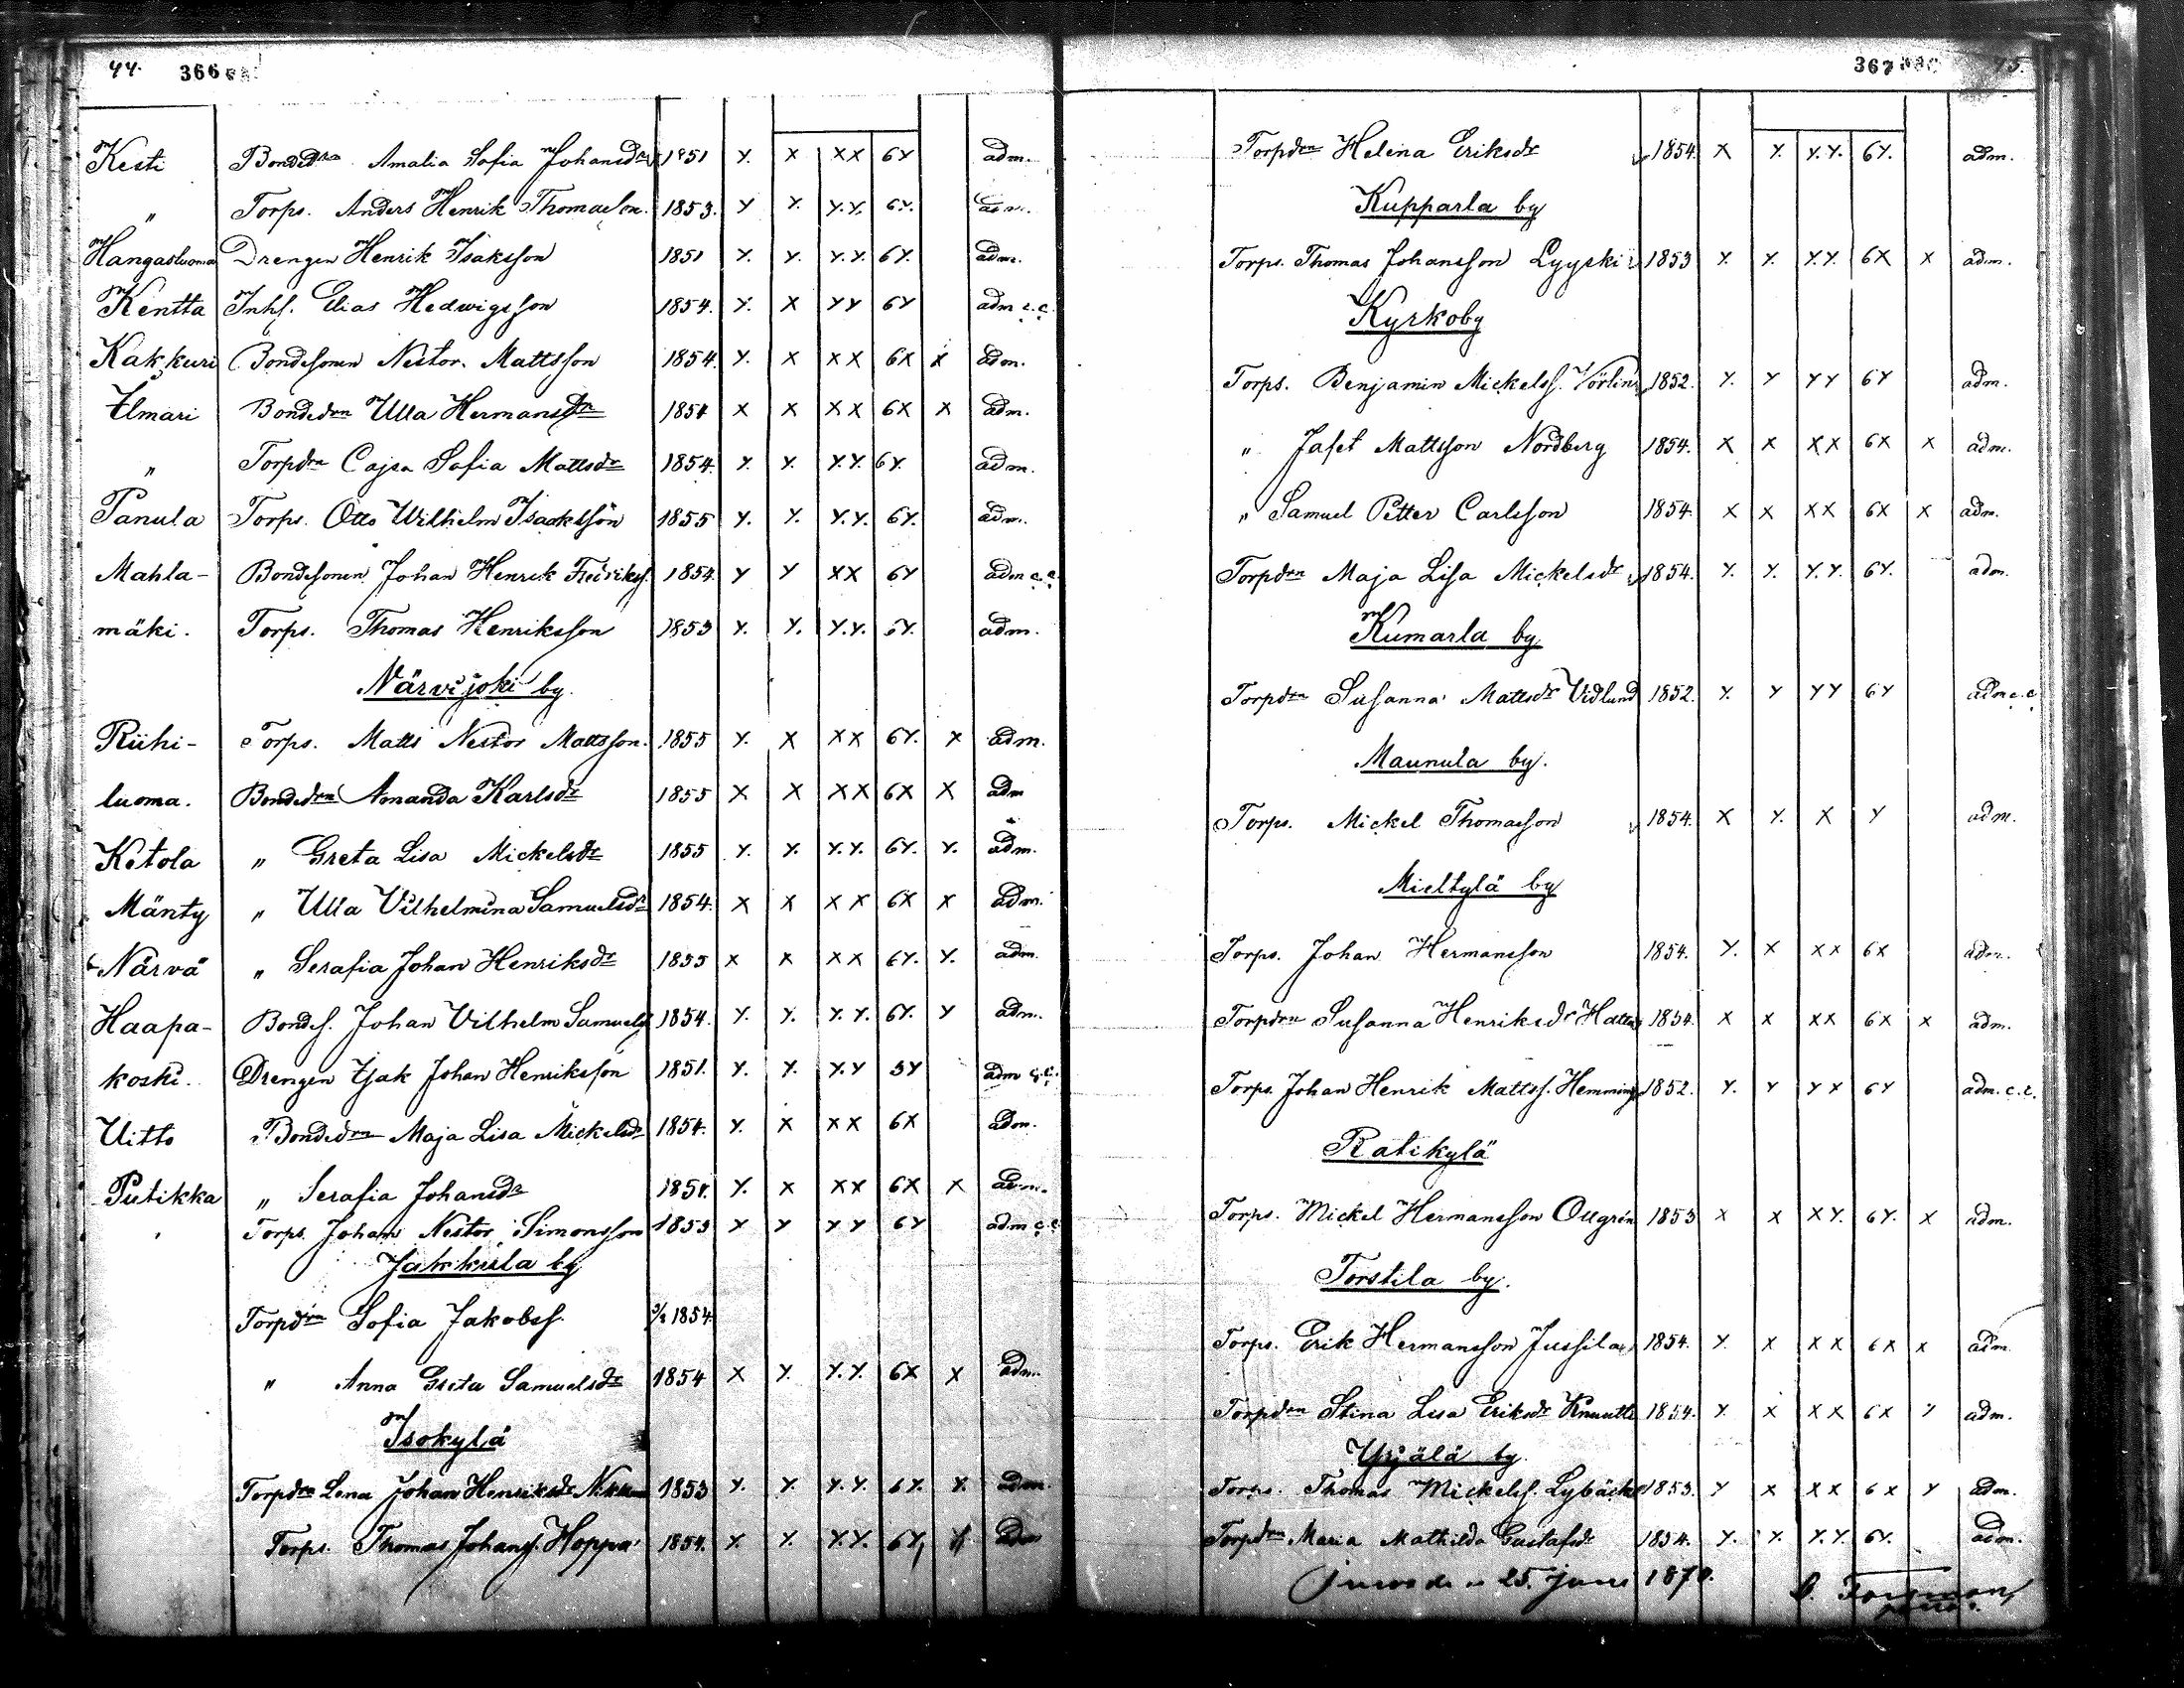 44. 366
Kesti Bondedrn Amalia Sofia Johansdr 1851 y. x xx 6y adm.
" Torps. Anders Henrik Thomasson. 1853. y y. y.y. 6y. adm.
Hangasluoma Drengen Henrik Isaksson 1851 y. y. y.y. 6y. adm.
Kentta Inhs. Elias Hedwigsson 1854. y. x yy 6y adm c.c.
Kakkuri Bondesonen Nestor. Mattsson 1854. y. x xx 6x x adm.
Ilmari Bondedrn Ulla Hermansdr 1854 x x xx 6x x adm.
" Torpdrn Cajsa Sofia Mattsdr 1854. y. y. y.y. 6y. adm.
Panula Torps. Otto Wilhelm Isacksson 1855 y. y. y.y. 6y. adm.
Mahla- Bondesonen Johan Henrik Fredrikss. 1854. y y xx 6y adm c.c.
mäki. Torps. Thomas Henriksson 1853 y. y. y.y. 6y. adm.
Närvijoki by.
Riihi- Torps. Matts Nestor Mattsson. 1855 y. x xx 6y. x adm.
luoma. Bondedrn Amanda Karlsdr 1855 x x xx 6x x adm
Ketola " Greta Lisa Mickelsdr 1855 y. y. y.y. 6y. y. adm.
Mänty " Ulla Vilhelmina Samuelsdr 1854. x x xx 6x x adm.
Närvä " Serafia Johan Henriksdr 1855 x x xx 6y. y. adm.
Haapa- Bondes. Johan Vilhelm Samuels. 1854. y. y. y.y. 6y. y adm.
koski. Drengen Isak Johan Henriksson 1851. y. y. y.y 5y adm c.c.
Uitto Bondedrn Maja Lisa Mickelsdr 1854. y. x xx 6x adm.
Putikka " Serafia Johansdr y. x xx 6x x adm.
Torps. Johan Nestor Simonsson 1853 y y yy 6y adm c.c.
Jakkula by
Torpdrn Sofia Jakobss. 1854.
" Anna Greta Samuelsdr 1854 x y. y.y. 6x x adm.
Isokylä
Torpdrn Lena Johan Henriksdr 1853 y. y. y.y. 6y. x adm.
Torps. Thomas Johanss. Hoppa 1854. y. y. y.y. 6y. adm
367
Torpdrn Helena Eriksdr 1854. x y. y.y. 6y. adm.
Kupparla by
Torps. Thomas Johansson Lyyski 1853 y. y. y.y. 6x x adm.
Kyrkoby
Torps. Benjamin Mickelss. Vörlin 1852. y. y yy 6y adm.
" Jafet Mattsson Nordberg 1854. x x xx 6x x adm.
" Samuel Petter Carlsson 1854. x x xx 6x x adm.
Torpdrn Maja Lisa Mickelsdr 1854. y. y. y.y. 6y. adm.
Kumarla by
Torpdrn Susanna Mattsdr Vidlund 1852. y. y yy 6y adm c.c.
Maunula by.
Torps. Mickel Thomasson 1854. x y. x y adm.
Mieltylä by
Torps. Johan Hermansson 1854. y. x xx 6x adm.
Torpdrn Susanna Henriksdr 1854. x x xx 6x x adm.
Torps. Johan Henrik Mattss. Hemming 1852. y. y yx 6y adm. c.c.
Ratikylä
Torps. Mickel Hermansson Ollgrén 1853 x x xy. 6y. x adm.
Torstila by.
Torps. Erik Hermansson Jussila 1854. y. x xx 6x x adm.
Torpdrn Stina Lisa Eriksdr Knuutti 1854. y. x xx 6x y adm.
Yrjälä by.
Torps. Thomas Mickelss. Lybäck 1853. y x xx 6x y adm.
Torpdrn Maria Mathilda Gustafsdr 1854. y. y. y.y. 6y. adm.
Jurva den 25. Juni 1870.
C. Forsman